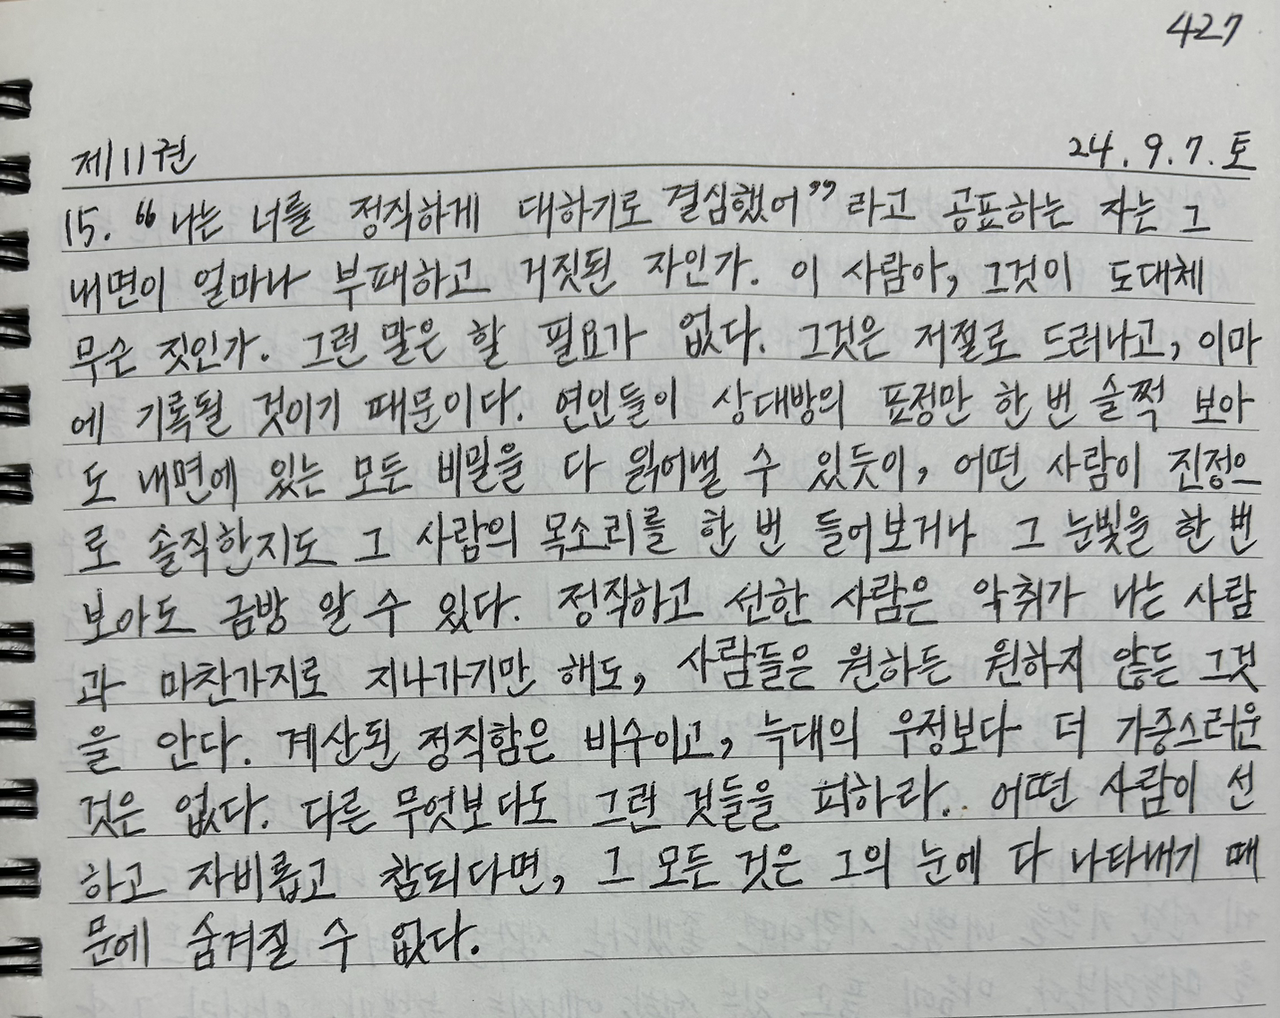 427
제11권 24.9.7.토
15. “나는 너를 정직하게 대하기로 결심했어”라고 공표하는 자는 그
내면이 얼마나 부패하고 거짓된 자인가. 이 사람아, 그것이 도대체
무슨 짓인가. 그런 말은 할 필요가 없다. 그것은 저절로 드러나고, 이마
에 기록될 것이기 때문이다. 연인들이 상대방의 표정만 한 번 슬쩍 보아
도 내면에 있는 모든 비밀을 다 읽어낼 수 있듯이, 어떤 사람이 진정으
로 솔직한지도 그 사람의 목소리를 한 번 들어보거나 그 눈빛을 한 번
보아도 금방 알 수 있다. 정직하고 선한 사람은 악취가 나는 사람
과 마찬가지로 지나가기만 해도, 사람들은 원하든 원하지 않든 그것
을 안다. 계산된 정직함은 비수이고, 늑대의 우정보다 더 가증스러운
것은 없다. 다른 무엇보다도 그런 것들을 피하라. 어떤 사람이 선
하고 자비롭고 참되다면, 그 모든 것은 그의 눈에 다 나타내기 때
문에 숨겨질 수 없다.